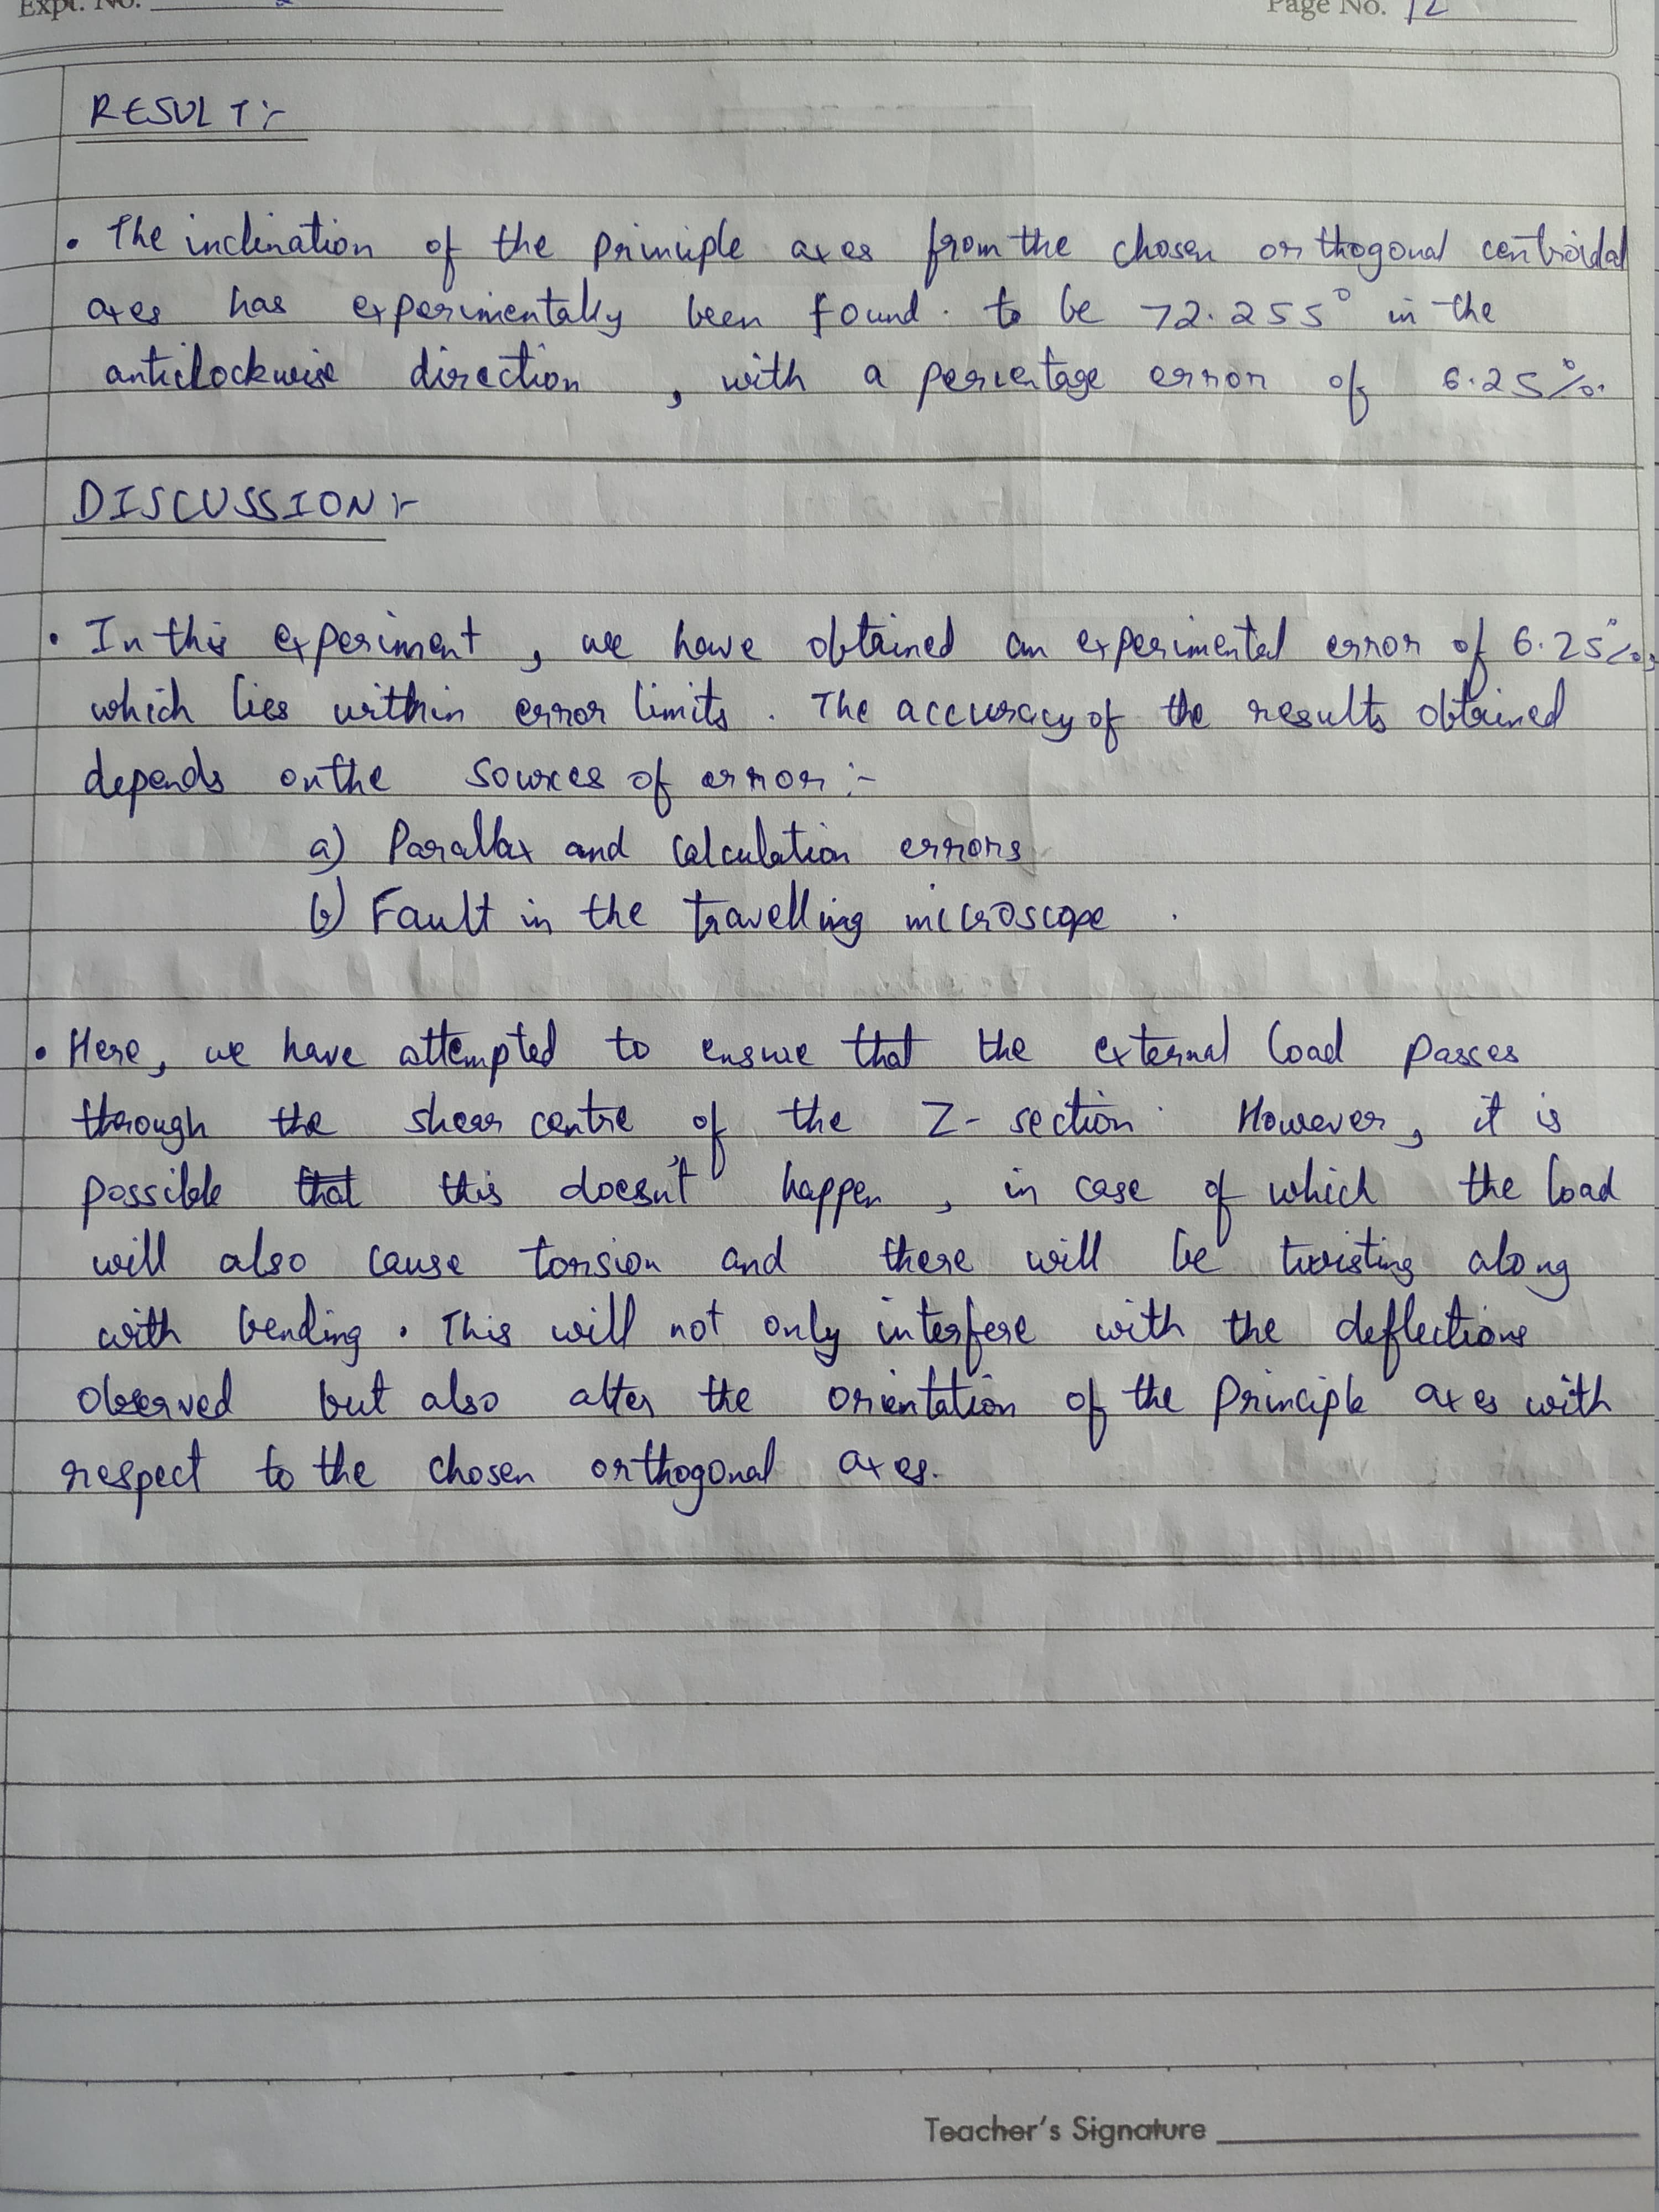 Expt. No.
Page No. 12
RESULT :-
• The inclination of the principle axes from the chosen orthogonal centroidal
axes has experimentally been found to be 72.255° in the
anticlockwise direction , with a percentage error of 6.25%.
DISCUSSION :-
• In this experiment , we have obtained an experimental error of 6.25%,
which lies within error limits . The accuracy of the results obtained
depends on the sources of error :-
a) Parallax and calculation errors
b) Fault in the travelling microscope .
• Here, we have attempted to ensure that the external load passes
through the shear centre of the Z-section. However, it is
possible that this doesn't happen , in case of which the load
will also cause torsion and there will be twisting along
with bending . This will not only interfere with the deflections
observed but also alter the orientation of the principle axes with
respect to the chosen orthogonal axes.
Teacher's Signature